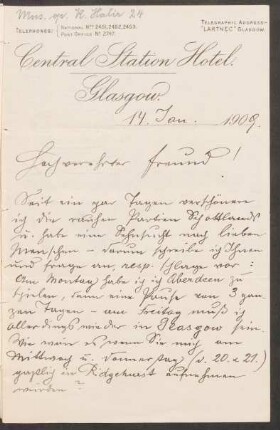 Mus. ep. K. Halir 24
TELEPHONES: NATIONAL Nos 2451, 2452, 2453.
POST OFFICE No 2747.
TELEGRAPHIC ADDRESS:
"LARTNEC" GLASGOW.
Central Station Hotel.
Glasgow.
14 Jan. 1909
Hochverehrter Freund!
Seit ein par Tagen verschönere
ich die rauhen Partien Schottlands
u. habe eine Sehnsucht nach lieben
Menschen – darum schreibe ich Ihnen
und frage an, resp. schlage vor:
Am Montag habe ich in Aberdeen zu
spielen, dann eine Pause von 3 gan-
zen Tagen – am Freitag muß ich
allerdings wieder in Glasgow sein.
Wie wäre es wenn Sie mich am
Mittwoch u. Donnerstag (d. 20. u 21.)
gastlich in Ridgehurst aufnehmen
würden?